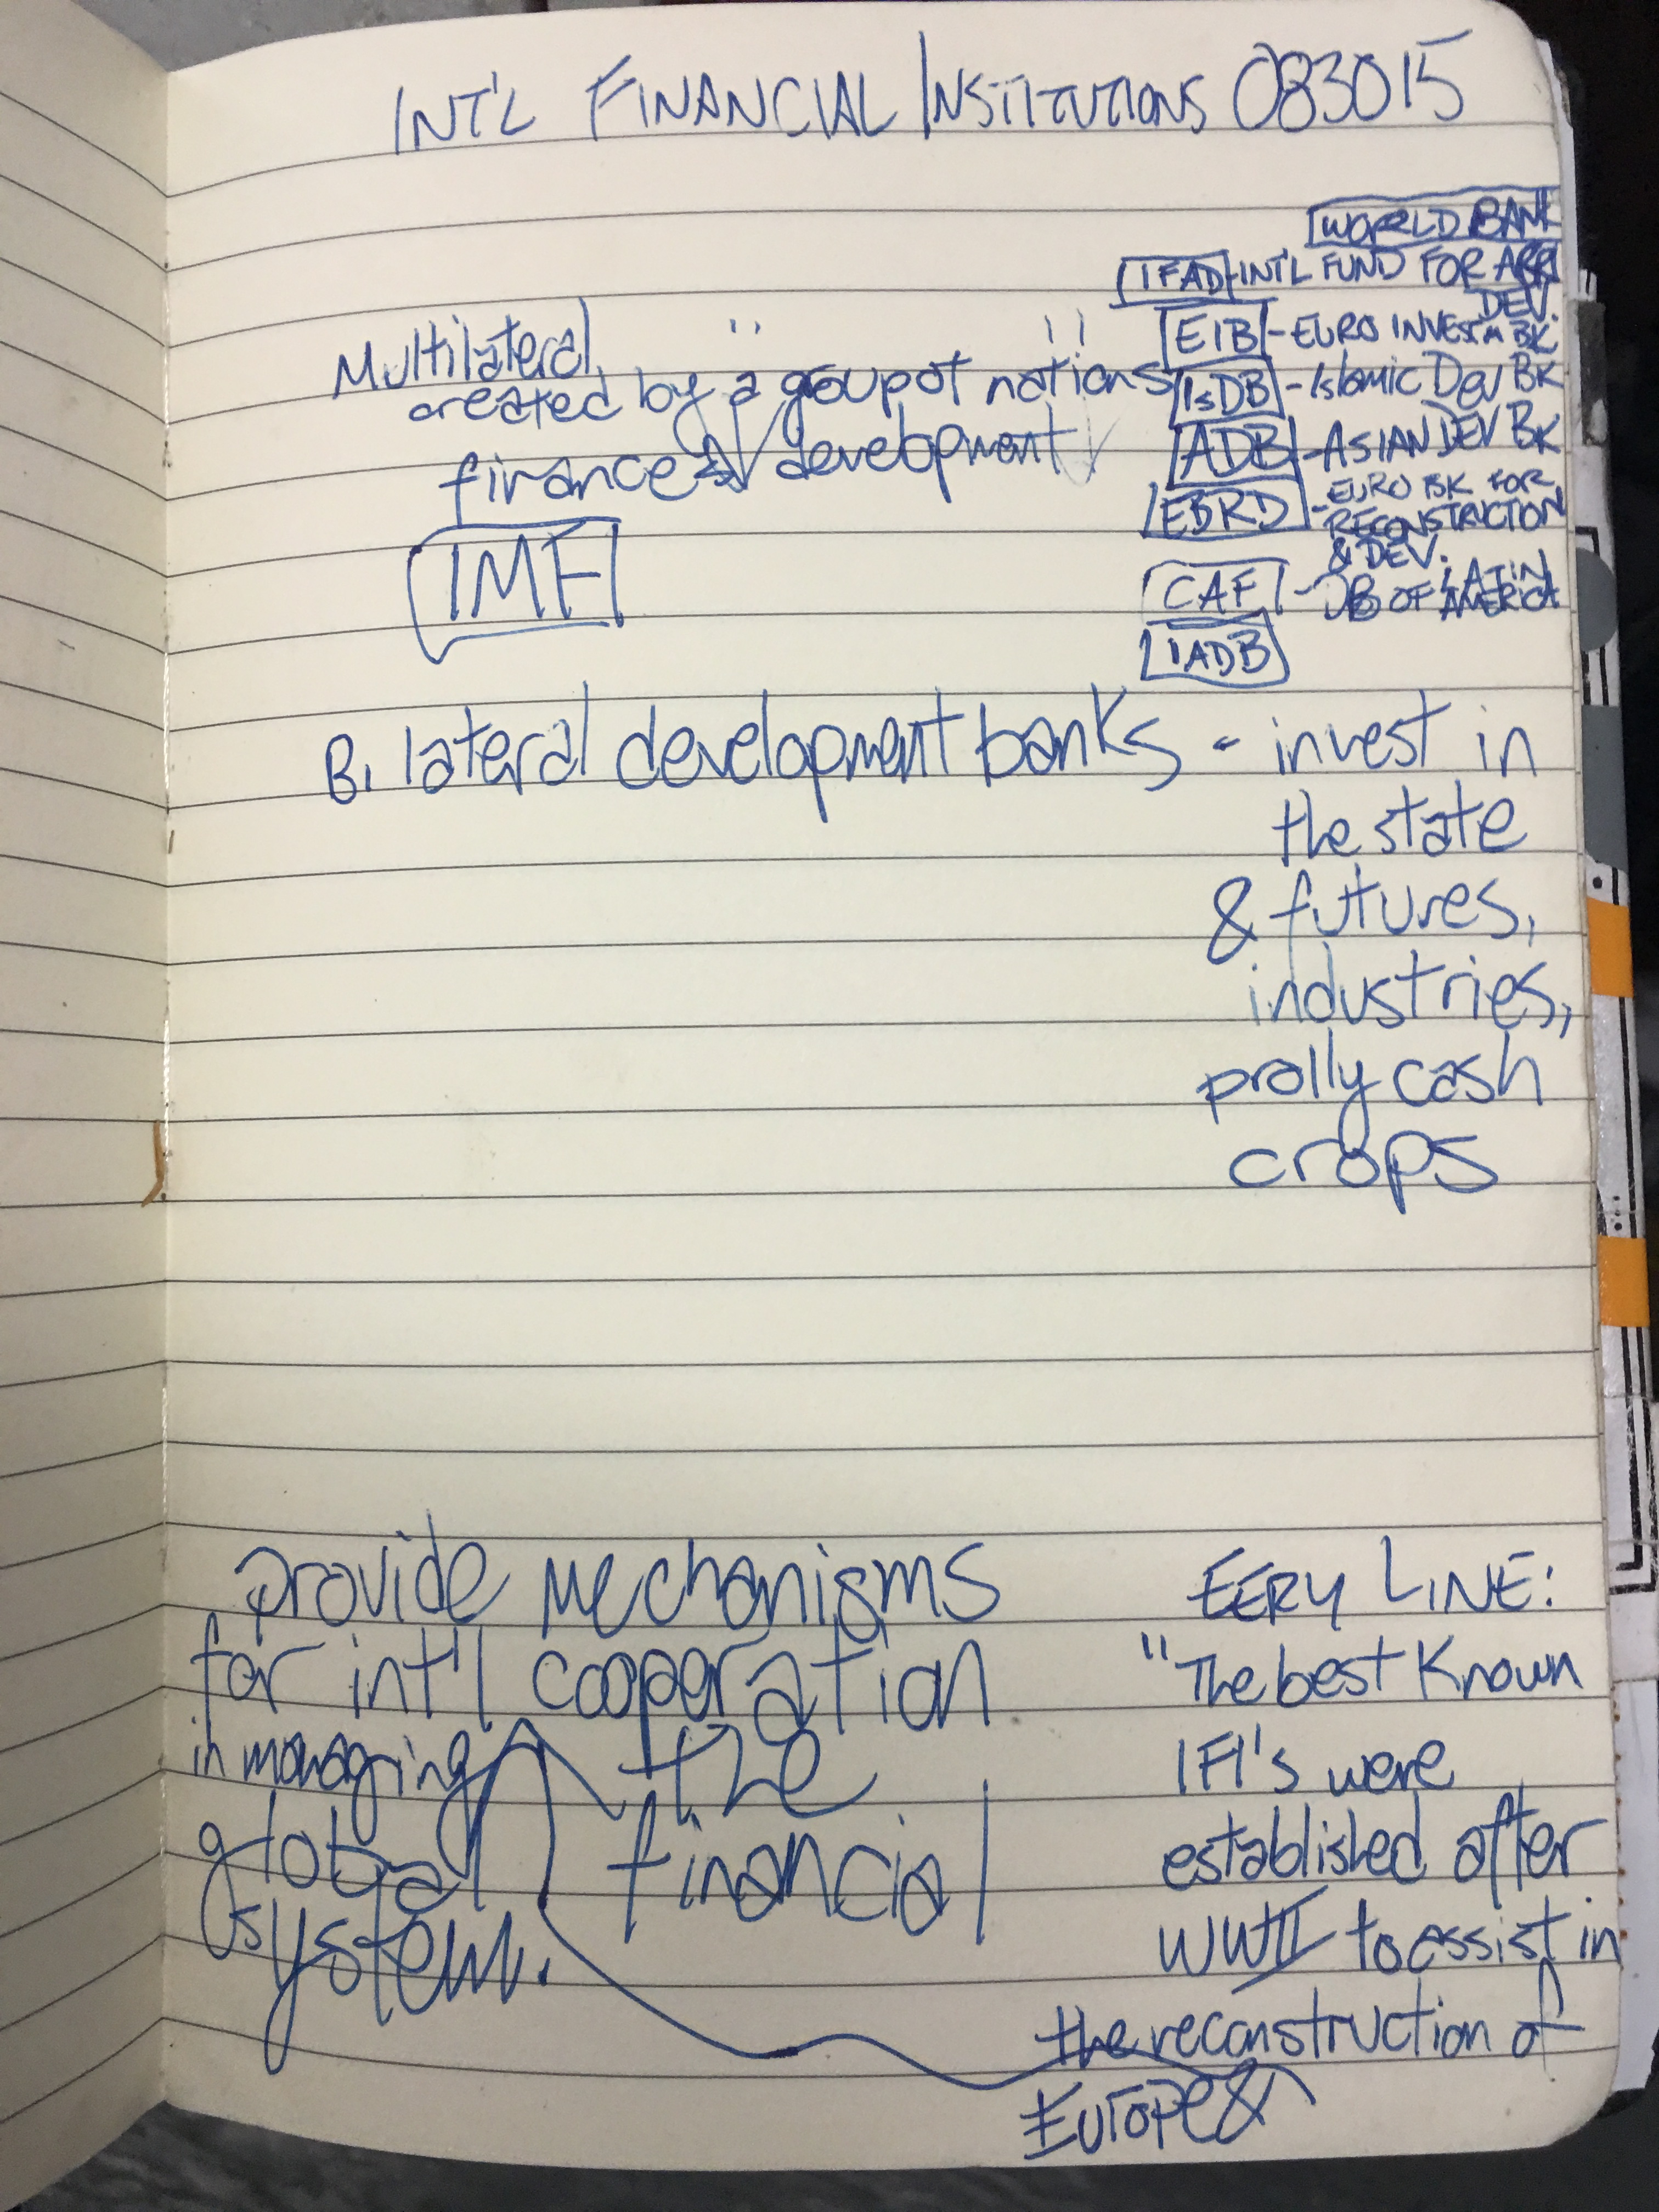 INT'L FINANCIAL INSTITUTIONS 083015
WORLD BANK
IFAD - INT'L FUND FOR AGRI
DEV.
EIB - EURO INVESTM BK
IsDB - Islamic Dev BK
ADB - ASIAN DEV BK
EBRD - EURO BK FOR
RECONSTRUCTION
& DEV.
CAF - DB OF LATIN
AMERICA
IADB
Multilateral " "
created by a group of nations
finances development
IMF
Bilateral development banks - invest in
the state
& futures,
industries,
prolly cash
crops
provide mechanisms
for int'l cooperation
in managing the
global financial
system.
EERY LINE:
"The best known
IFI's were
established after
WWII to assist in
the reconstruction of
Europe &